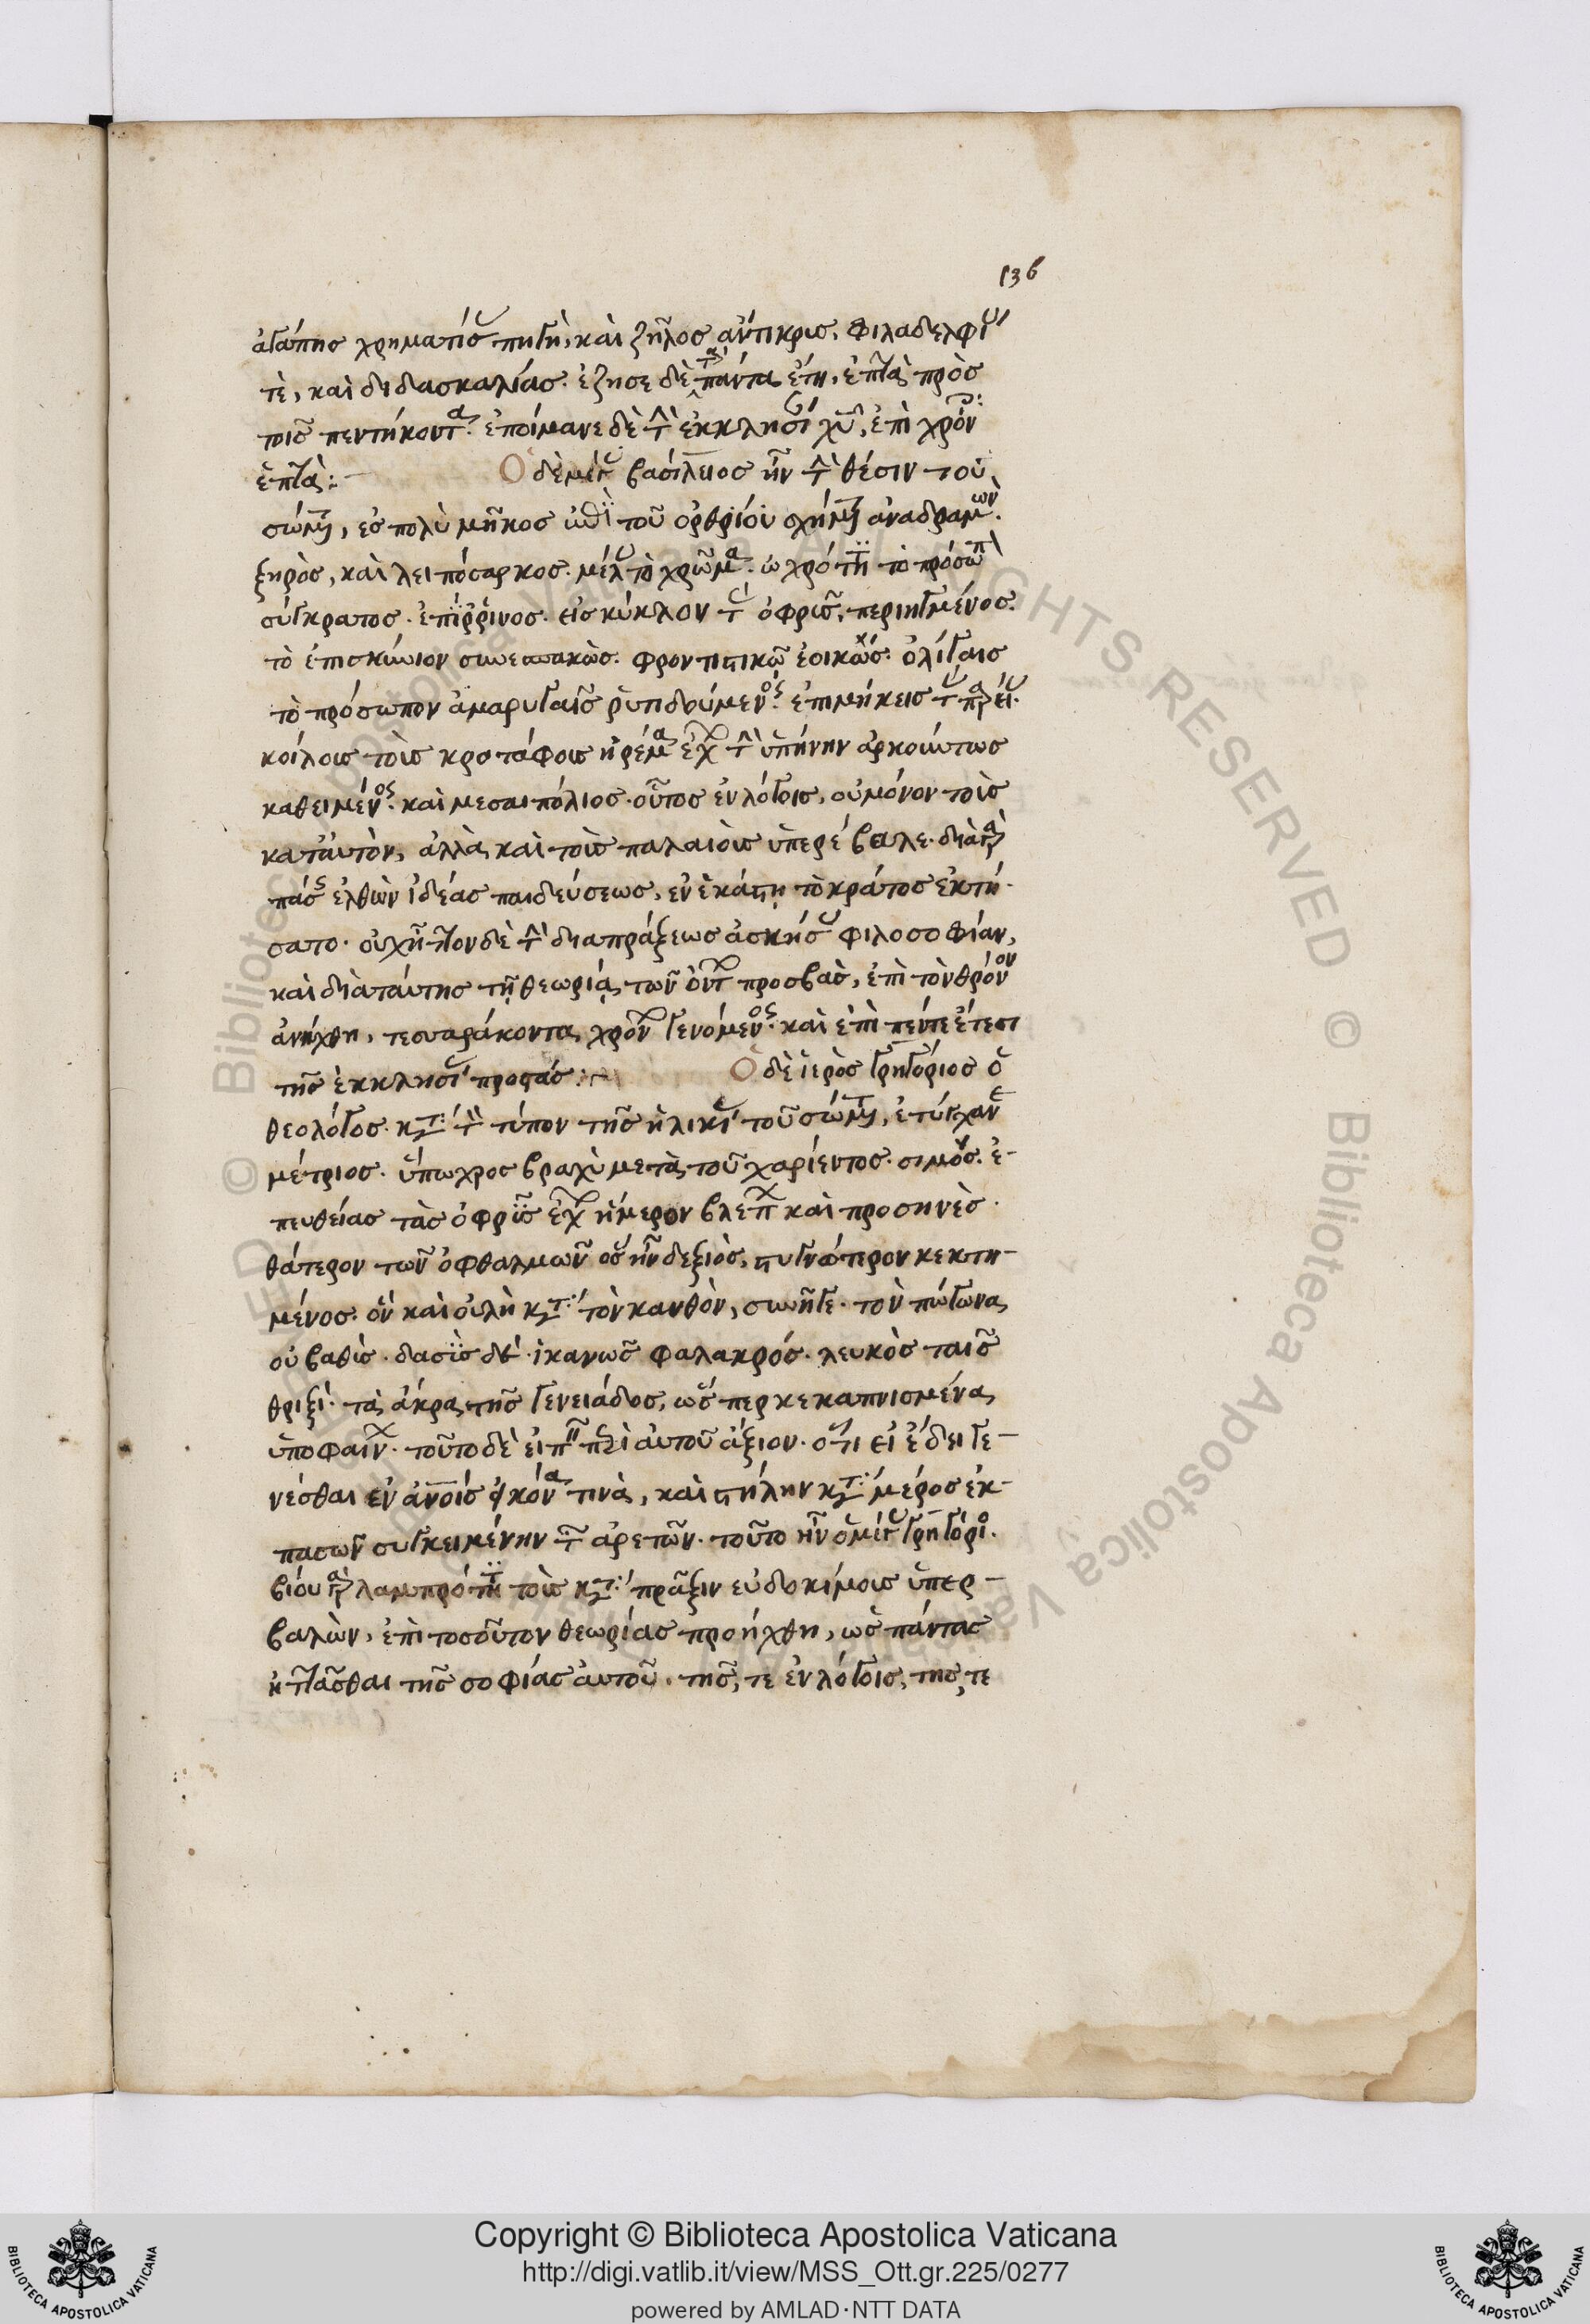 136
ἀγάπης χρηματίσας πηγὴ, καὶ ζῆλος ἄντικρις, φιλαδελφίας
τὲ, καὶ διδασκαλίας. ἔζησε δὲ τὰ πάντα ἔτη, ἑπτὰ πρὸς
τοῖς πεντήκοντα. ἐποίμανε δὲ τὴν ἐκκλησίαν χυ, ἐπὶ χρόνοις
ἑπτὰ:
Ὁ δὲ μέγας βασίλειος ἦν τὴν θέσιν τοῦ
σώματος, ἐς πολὺ μῆκος τοῦ ὀρθρίου σχήματος ἀναδραμὼν.
ξηρὸς, καὶ λειπόσαρκος. μέλας τὸ χρῶμα. ὠχρότητι τὸ πρόσωπον
σύγκρατος. ἐπίρρινος. εἰς κύκλον τὰς ὀφρῦς, περιηγμένος.
τὸ ἐπισκύνιον συνεσπακὼς. φροντιστικῷ ἐοικώς. ὀλίγαις
τὸ πρόσωπον ἀμαρυγαῖς ῥυτιδούμενος. ἐπιμήκεις τὰς παρειάς.
κοίλοις τοῖς κροτάφοις ἠρέμα ἔχων τὴν ὑπήνην ἀρκούντως
καθειμένος. καὶ μεσαιπόλιος. οὗτος ἐν λόγοις, οὐ μόνον τοῖς
κατ' αὐτὸν, ἀλλὰ καὶ τοῖς παλαιοῖς ὑπερέβαλε. διὰ γὰρ
πάσης ἐλθὼν ἰδέας παιδεύσεως, ἐν ἑκάστῃ τὸ κράτος ἐκτή-
σατο. οὐχ ἧττον δὲ τὴν διαπράξεως ἀσκήσας φιλοσοφίαν,
καὶ διὰ ταύτης τῇ θεωρίᾳ τῶν ὄντων προσβὰς, ἐπὶ τὸν θρόνον
ἀνήχθη, τεσσαράκοντα χρόνων γενόμενος. καὶ ἐπὶ πέντε ἔτεσι
τῆς ἐκκλησίας προστάς:
Ὁ δὲ ἱερὸς γρηγόριος ὁ
θεολόγος. κατὰ τὸν τύπον τῆς ἡλικίας τοῦ σώματος, ἐτύγχανε
μέτριος. ὕπωχρος βραχὺ μετὰ τοῦ χαρίεντος. σιμός. ἐ-
πευθείας τὰς ὀφρῦς ἔχων ἥμερον βλέπων καὶ προσηνὲς.
θάτερον τῶν ὀφθαλμῶν ὃς ἦν δεξιὸς, στυγνότερον κεκτη-
μένος. ὃν καὶ οὐλὴ κατὰ τὸν κανθὸν, συνῆγε. τὸν πώγωνα
οὐ βαθὺς. δασὺς δὲ ἱκανῶς φαλακρός. λευκὸς ταῖς
θριξὶ. τὰ ἄκρα τῆς γενειάδος, ὥσπερ κεκαπνισμένα
ὑποφαίνων. τοῦτο δὲ εἰπεῖν περὶ αὐτοῦ ἄξιον. ὅτι εἰ ἔδει γε-
νέσθαι ἐν ἀνοις εἰκόνα τινὰ, καὶ στήλην κατὰ μέρος ἐκ-
πασῶν συγκειμένην τῶν ἀρετῶν. τοῦτο ἦν ὁ μέγας γρηγόριος.
βίου γὰρ λαμπρότητι τοῖς κατὰ πρᾶξιν εὐδοκίμοις ὑπερ-
βαλὼν, ἐπὶ τοσοῦτον θεωρίας προήχθη, ὡς πάντας
ἡττᾶσθαι τῆς σοφίας αὐτοῦ, τῆς, τε ἐν λόγοις, τῆς, τε
Copyright © Biblioteca Apostolica Vaticana
http://digi.vatlib.it/view/MSS_Ott.gr.225/0277
powered by AMLAD·NTT DATA